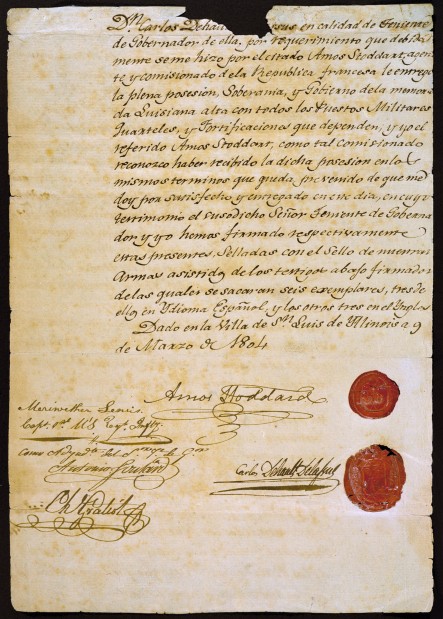 Dn. Carlos Dehau sus en calidad de Teniente
de Gobernador de ella, por requerimiento que debida
mente se me hizo por el citado Amos Stoddart, agen
te y comisionado de la Republica francesa le entrego
la plena posesion, Soberania, y Govierno de la
Luisiana alta con todos los Puestos Militares
Quarteles, y Fortificaciones que dependen, y yo el
referido Amos Stoddart, como tal comisionado
reconozco haber recibido la dicha posesion en los
mismos terminos que queda prevenido de que me
doy por satisfecho y entregado en este dia, en cuyo
testimonio el susodicho Señor Teniente de Goberna
dor y yo hemos firmado respectivamente
estas presentes, Selladas con el Sello de nuestras
Armas asistidos de los testigos abajo firmados
de las quales se sacaran seis exemplares, tres de
ellos en Ydioma Español, y los otros tres en el Ingles
Dado en la Villa de Sn. Luis de Ylinois a 9
de Marzo de 1804
Amos Stoddard
Meriwether Lewis
Capt. 1st. U.S. Regt. Infty.
Carlos Dehault Delassus
Antonio Soulard
Ch Gratiot